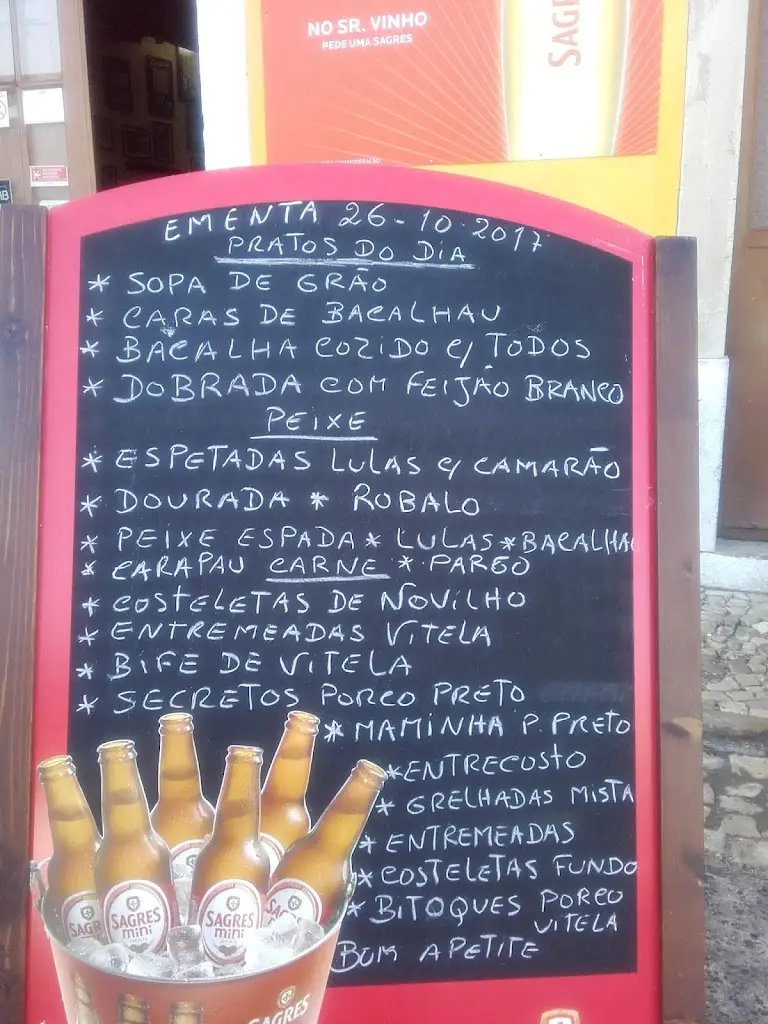 NO SR. VINHO
PEDE UMA SAGRES
SAGR
EMENTA 26-10-2017
PRATOS DO DIA
* SOPA DE GRÃO
* CARAS DE BACALHAU
* BACALHA COZIDO C/ TODOS
* DOBRADA COM FEIJÃO BRANCO
PEIXE
* ESPETADAS LULAS C/ CAMARÃO
* DOURADA * ROBALO
* PEIXE ESPADA * LULAS * BACALHAU
* CARAPAU CARNE * PARGO
* COSTELETAS DE NOVILHO
* ENTREMEADAS VITELA
* BIFE DE VITELA
* SECRETOS PORCO PRETO
* MAMINHA P. PRETO
* ENTRECOSTO
* GRELHADAS MISTA
* ENTREMEADAS
* COSTELETAS FUNDO
* BITOQUES PORCO
VITELA
BOM APETITE
SAGR
SAGRES
mini
SAGRES
mini
SAGRES